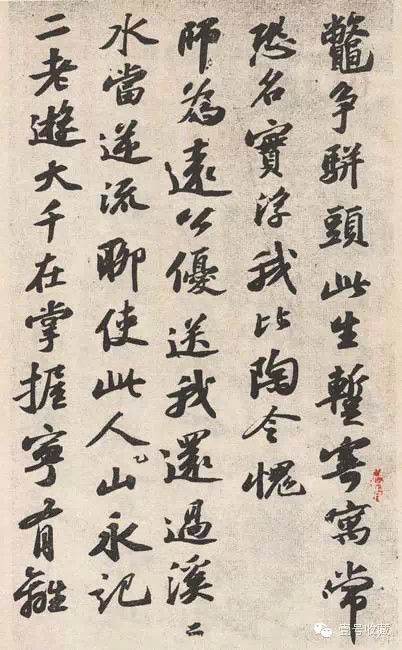 鼈争駢頭此生暫寄寓常
恐名實浮我比陶令愧
師為遠公優送我還過溪〻
水當逆流聊使此人山永記
二老遊大千在掌握寧有離
壹号收藏